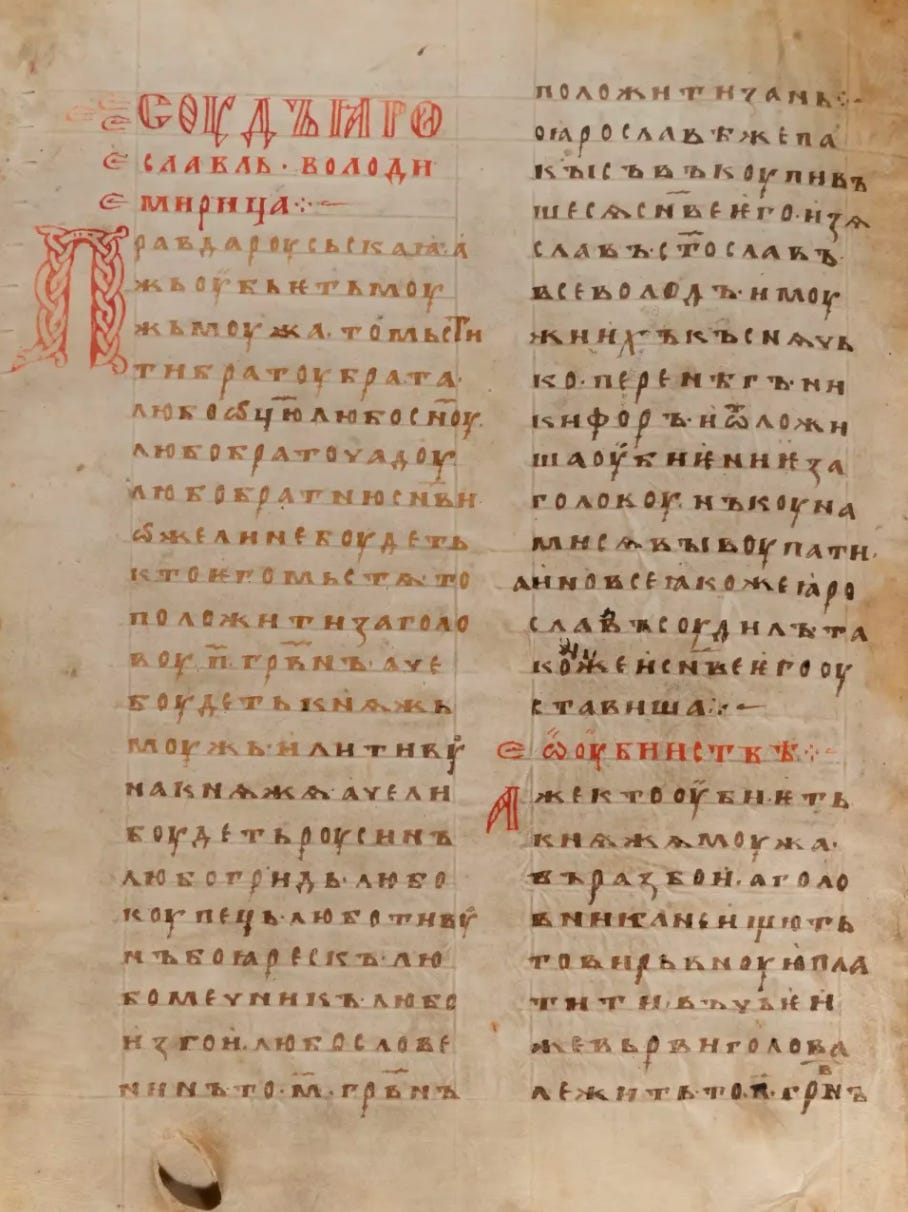 СОУДЪ ꙖРО
СЛАВЛЬ · ВОЛОДИ
МИРИЦА ⁘ —
ПРАВДА РОУСЬСКАꙖ · А
ЖЬ ОУБЬѤТЬ МОУ
ЖЬ МОУЖА · ТО МЬСТИ
ТИ БРАТОУ БРАТА ·
ЛЮБО Ѿц҃Ю ЛЮБО СН҃ОУ ·
ЛЮБО БРАТОУЧАДОУ
ЛЮБО БРАТНЮ СН҃ВИ ·
ѠЖЕ ЛИ НЕ БОУДЕТЬ
КТО ѤГО МЬСТѦ ТО
ПОЛОЖИТИ ЗА ГОЛО
ВОУ · П҃ · ГРВ҃НЪ · АЧЕ
БОУДЕТЬ КНѦЖЬ
МОУЖЬ ИЛИ ТИВОУ
НА КНѦЖѦ · АЧЕ ЛИ
БОУДЕТЬ РОУСИНЪ
ЛЮБО ГРИДЬ · ЛЮБО
КОУПЕЦЬ · ЛЮБО ТИВОУ
НЪ БОꙖРЕСКЪ · ЛЮ
БО МЕЧНИКЪ · ЛЮБО
ИЗГОИ · ЛЮБО СЛОВЕ
НИНЪ ТО · М҃ · ГРВ҃НЪ
ПОЛОЖИТИ ЗА НЬ ⁘ —
О ꙖРОСЛАВѢ ЖЕ ПА
КЫ СЪВЪКОУПИВЪ
ШЕСѦ СН҃ВЕ ѤГО · ИЗѦ
СЛАВЪ · СТ҃ОСЛАВЪ ·
ВСЕВОЛОДЪ · И МОУ
ЖИ ИХЪ КЪСНѦЧЬ
КО · ПЕРЕНѢГЪ · НИ
КИФОРЪ · И ѾЛОЖИ
ША ОУБИѤНИѤ ЗА
ГОЛОВОУ · НЪ КОУНА
МИ СѦ ВЫКОУПАТИ ·
А ИНО ВСЕ ꙖКОЖЕ ꙖРО
СЛАВЪ СОУДИЛЪ ТА
КОЖЕ И СН҃ВЕ ѤГО ОУ
СТАВИША ⁘ —
Ѡ ОУБИИСТВѢ ⁘ —
АЖЕ КТО ОУБИѤТЬ
КНѦЖѦ МОУЖА ·
ВЪ РАЗБОИ · А ГОЛО
ВНИКА НЕ ИЩЮТЬ
ТО ВИРЬВНОУЮ ПЛА
ТИТИ · ВЪ ЧЬѤИ
ЖЕ ВЬРВИ ГОЛОВА
ЛЕЖИТЬ ТО · П҃ · ГРВ҃НЪ